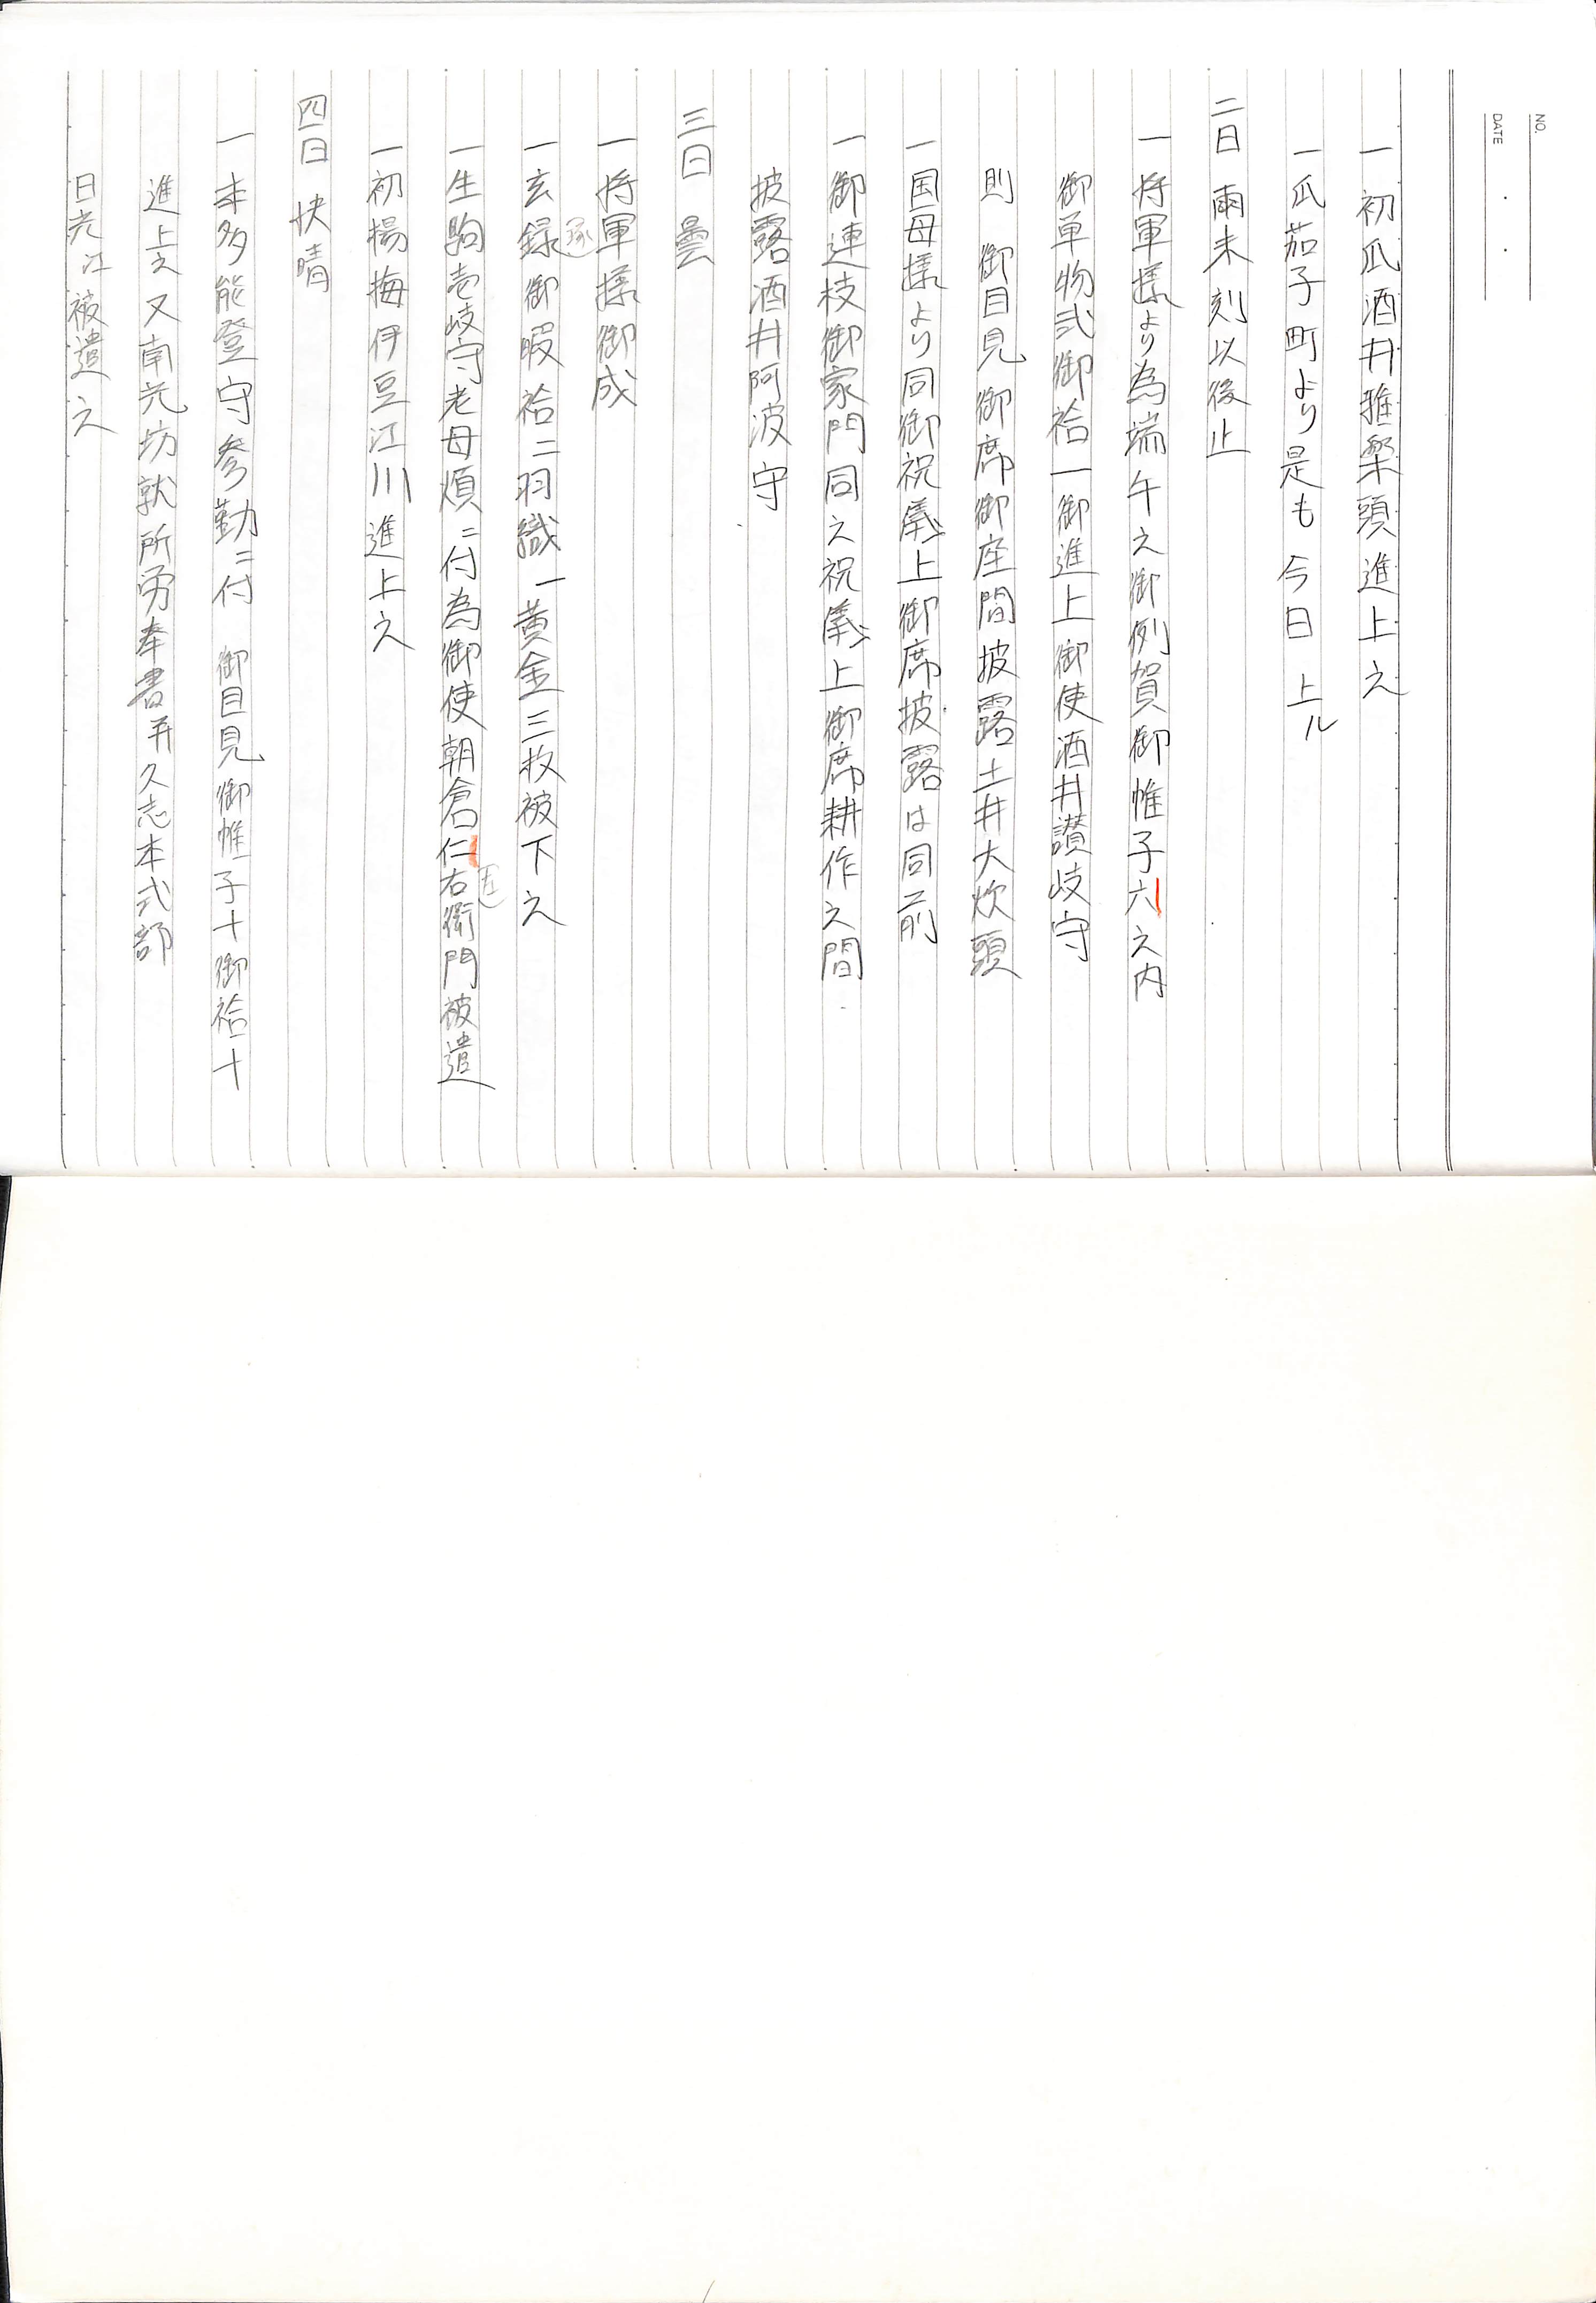 NO.
DATE
一 初瓜酒井雅楽頭進上之
一瓜茄子町より是も今日上ル
二日 雨未刻以後止
一将軍様より為端午之御例賀御帷子六之内
御単物弐御袷一御進上御使酒井讃岐守
則 御目見御席御座間披露土井大炊頭
一国母様より同御祝儀上御席披露は同前
一御連枝御家門同之祝儀上御席耕作之間
披露酒井阿波守
三日 曇
一将軍様御成
一玄録御暇袷二羽織一黄金三枚被下之
一生駒壱岐守老母煩ニ付為御使朝倉仁右衛門被遣
一初楊梅伊豆江川進上之
四日 快晴
一本多能登守参勤ニ付 御目見御帷子十御袷十
進上之又南光坊就所労奉書并久志本式部
日光江被遣之